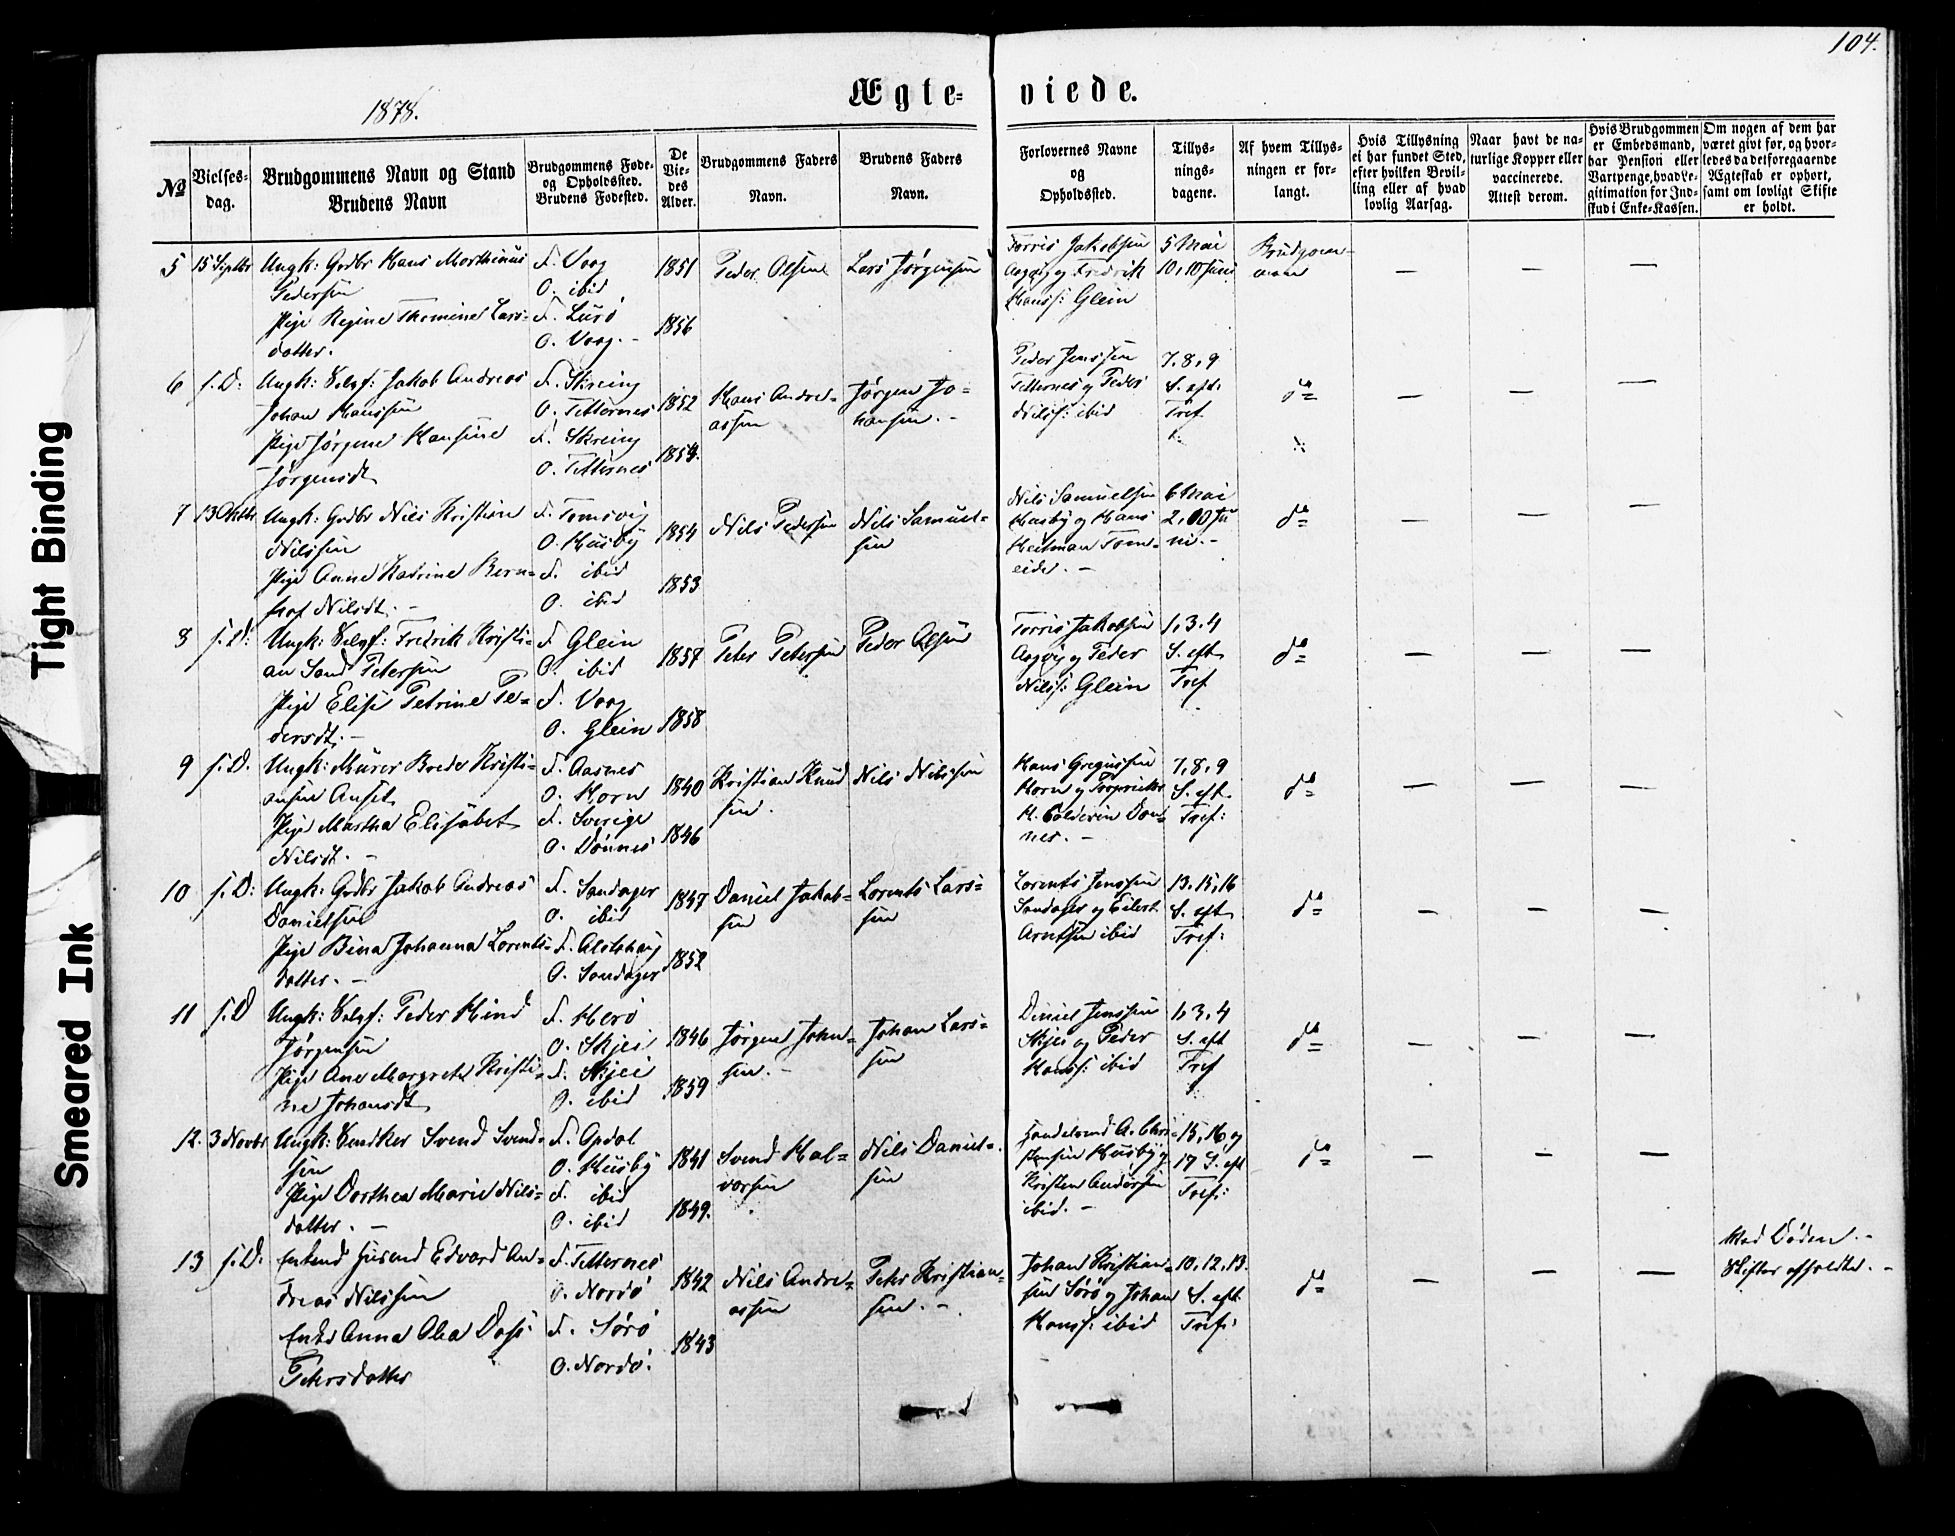 104.
1878.
Ægte= viede.
№
Vielses-
dag.
Brudgommens Navn og Stand
Brudens Navn
Brudgommens Føde-
og Opholdssted.
Brudens Fødested.
De
Vie-
des
Alder.
Brudgommens Faders
Navn.
Brudens Faders
Navn.
Forlovernes Navne
og
Opholdssted.
Tillys-
nings-
dagene.
Af hvem Tillys-
ningen er for-
langt.
Hvis Tillysning
ei har fundet Sted,
efter hvilken Bevil-
ling eller af hvad
lovlig Aarsag.
Naar havt de na-
turlige Kopper eller
vaccinerede.
Attest derom.
Hvis Brudgommen
er Embedsmand,
har Pension eller
Vartpenge, hvad Le-
gitimation for Ind-
skud i Enke-Kassen.
Om nogen af dem har
været gift før, og hvor-
ledes da det foregaaende
Ægteskab er ophørt,
samt om lovligt Skifte
er holdt.
5 15 Septbr Ungk: Grdbr Hans Marthinus
Pedersen
Pige Regine Thomine Lars-
datter.
F. Vaag
O. ibid
F. Lurö
O. Vaag. -
1851
1856
Peder Olsen
Lars Jørgensen
Torris Jakobsen
og Fredrik
Hanss: Glein
5 Mai
10, 10 Juni
Brudgom-
men
6 s. D: Ungk: Selvf: Jakob Andreas
Johan Hanssen
Pige Jørgine Hansine
Jørgensdt
F. Skreing
O. Titternes
F. Skreing
O. Titternes
1852
Hans Andre-
assen
Jørgen Jo-
hansen. -
Peder Jenssen
Titternes og Peder
Nilss: ibid
7. 8, 9
S. eft.
Tref.
do
7 13 Oktbr Ungk: Grdbr Nils Kristian
Nilssen
Pige Anne Katrine Bern-
hof Nilsdt. -
F. Tomsvig
O. Husby
F. ibid
O. ibid
1854
1853
Nils Pedersen
Nils Samuel-
sen
Nils Samuelsen
Husby og Hans
Heitman Tom-
eidet. -
6 Mai
2, 10 Ju
ni. -
do
8 s. D: Ungk: Selvf: Fredrik Kristi-
an Sand Petersen
Pige Elise Petrine Pe-
dersdt. -
F. Glein
O. ibid
F. Vaag
O. Glein
1857
1858
Peter Petersen
Peder Olsen
Torris Jakobsen
og Peder
Nilss: Glein
1, 3. 4
S. eft.
Tref
do
9 s. D. Ungk: Murer Kristi-
ansen
Pige Martha Elisabet
Nilsdt. -
F. Aasnes
O. Horn
F. Sverige
O. Dönnes
1840
1846
Kristian Knud
sen.
Nils Nilssen
Hans Gregussen
Horn og Proprietær
H. Coldevin Dön-
nes. -
7, 8, 9
S. eft.
Tref:
do
10 s. D: Ungk: Grdbr Jakob Andreas
Danielsen
Pige Bina Johanna Lorents-
datter. -
F. Sandager
O. ibid
F. Alstahaug
O. Sandager
1847
1852
Daniel Jakob-
sen
Lorents Lars-
sen
Lorents Jenssen
Sandager og Eilert
Arntsen ibid
13, 15, 16
S. eft.
Tref:
do
11 s. D Ungk: Selvf: Peder Hind
Jørgensen
Pige Ane Margrete Kristi-
ne Johansdt
F. Herö
O. Skjei
F. Skjei
O. ibid
1846
1859
Jørgen John-
sen. -
Johan Lars-
sen
Daniel Jenssen
Skjei og Peder
Hanss: ibid
1, 3, 4
S. eft
Tref
do
12. 3 Novbr Ungk: Snedker Svend Svend-
sen
Pige Dorthea Marie Nils-
datter. -
F. Opdal
O. Husby
F. ibid
O. ibid
1841
1849.
Svend Hal-
vorsen
Nils Daniel-
sen
Handelsmd A. Chri-
stensen Husby og
Kristen Andersen
ibid. -
15, 16 og
17 S. eft
Tref:
do
13 s. D: Enkemd Husmd Edvard An-
dreas Nilssen
Enke Anna Olea
Petersdatter
F. Titternes
O. Nordö
F. Sörö
O. Nordö.
1842
1843
Nils Andre-
assen
Peter Kristian-
sen. -
Johan Kristian-
sen Sörö og Johan
Hanss: ibid
10, 12, 13.
S. eft.
Tref:
do
Ved Døden. -
Skifter afholdte. -
Tight Binding
Smeared Ink